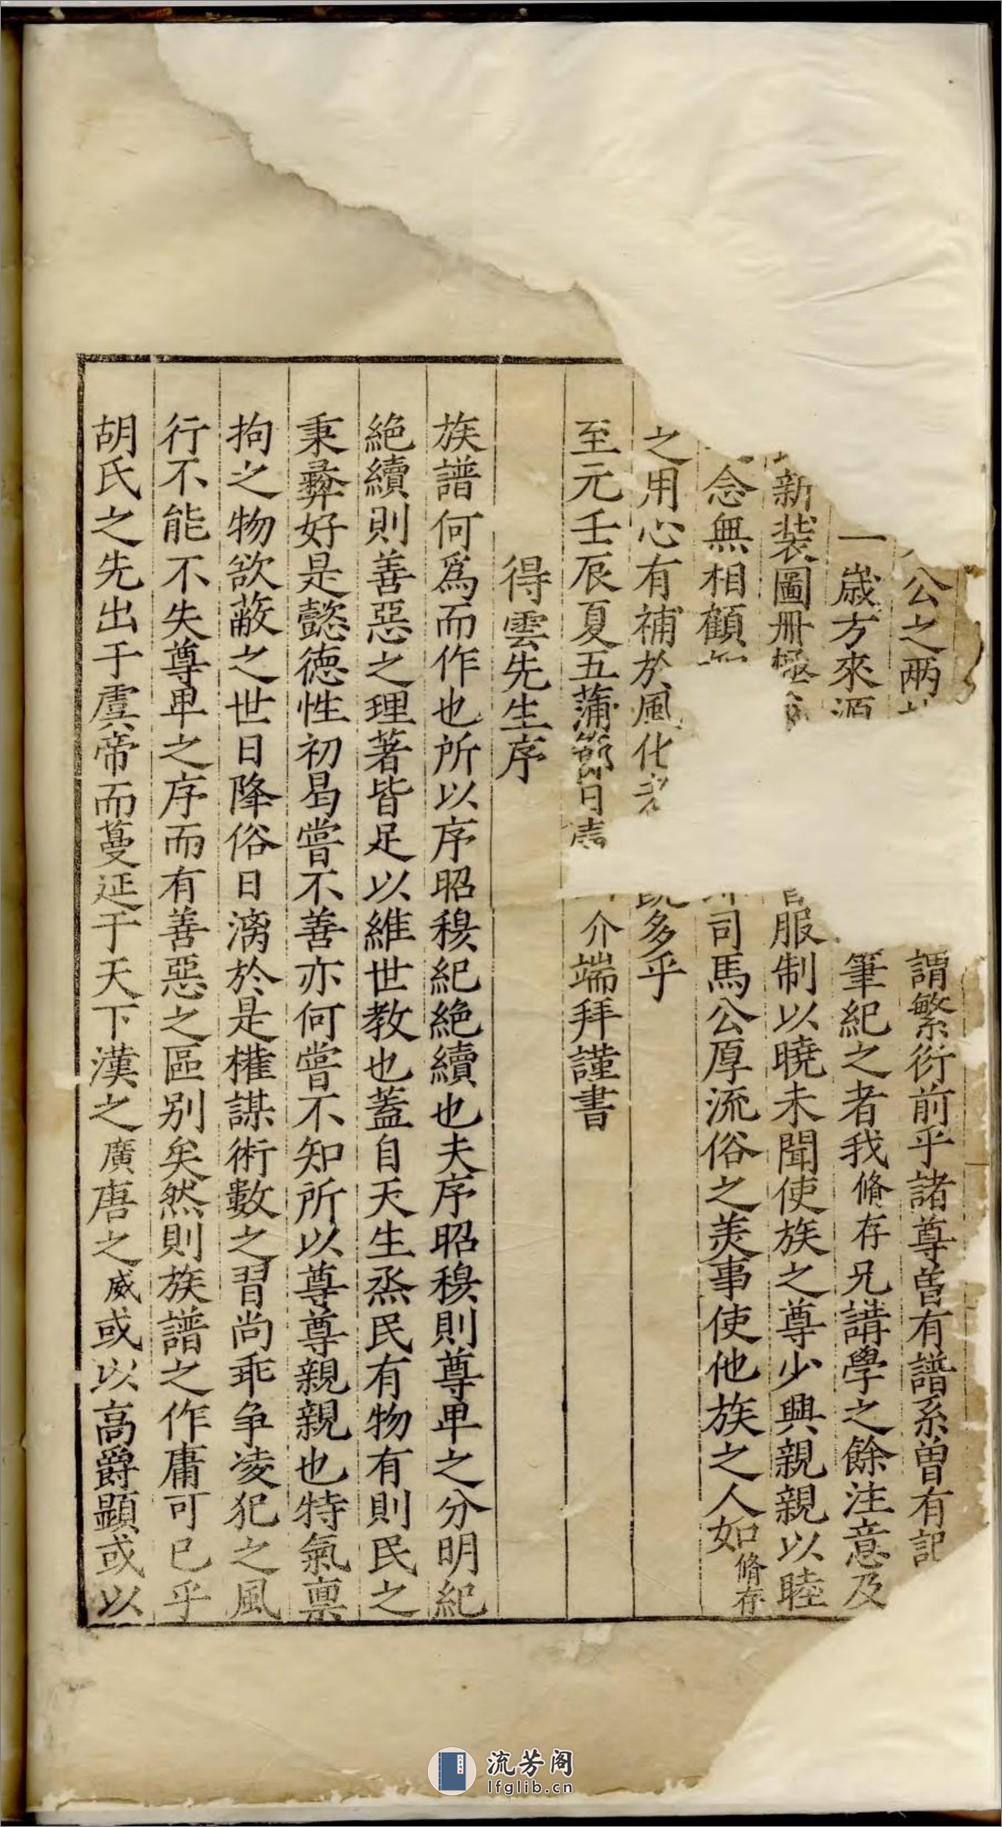 公之兩
謂繁衍前乎諸尊曽有譜系曽有記
一歳方來源
筆紀之者我脩存兄講學之餘注意及
新裝圖冊
服制以曉未聞使族之尊少興親親以睦
念無相顧
司馬公厚流俗之羙事使他族之人如脩存
之用心有補於風化
多乎
至元壬辰夏五蒲節日
介端拜謹書
得雲先生序
族譜何爲而作也所以序昭穆紀絶續也夫序昭穆則尊卑之分明紀
絶續則善惡之理著皆足以維世教也蓋自天生烝民有物有則民之
秉彝好是懿德性初曷嘗不善亦何嘗不知所以尊尊親親也特氣禀
拘之物欲蔽之世日降俗日漓於是權謀術數之習尚乖争凌犯之風
行不能不失尊卑之序而有善惡之區别矣然則族譜之作庸可已乎
胡氏之先出于虞帝而蔓延于天下漢之廣唐之威或以高爵顯或以
流芳阁
lfglib.cn